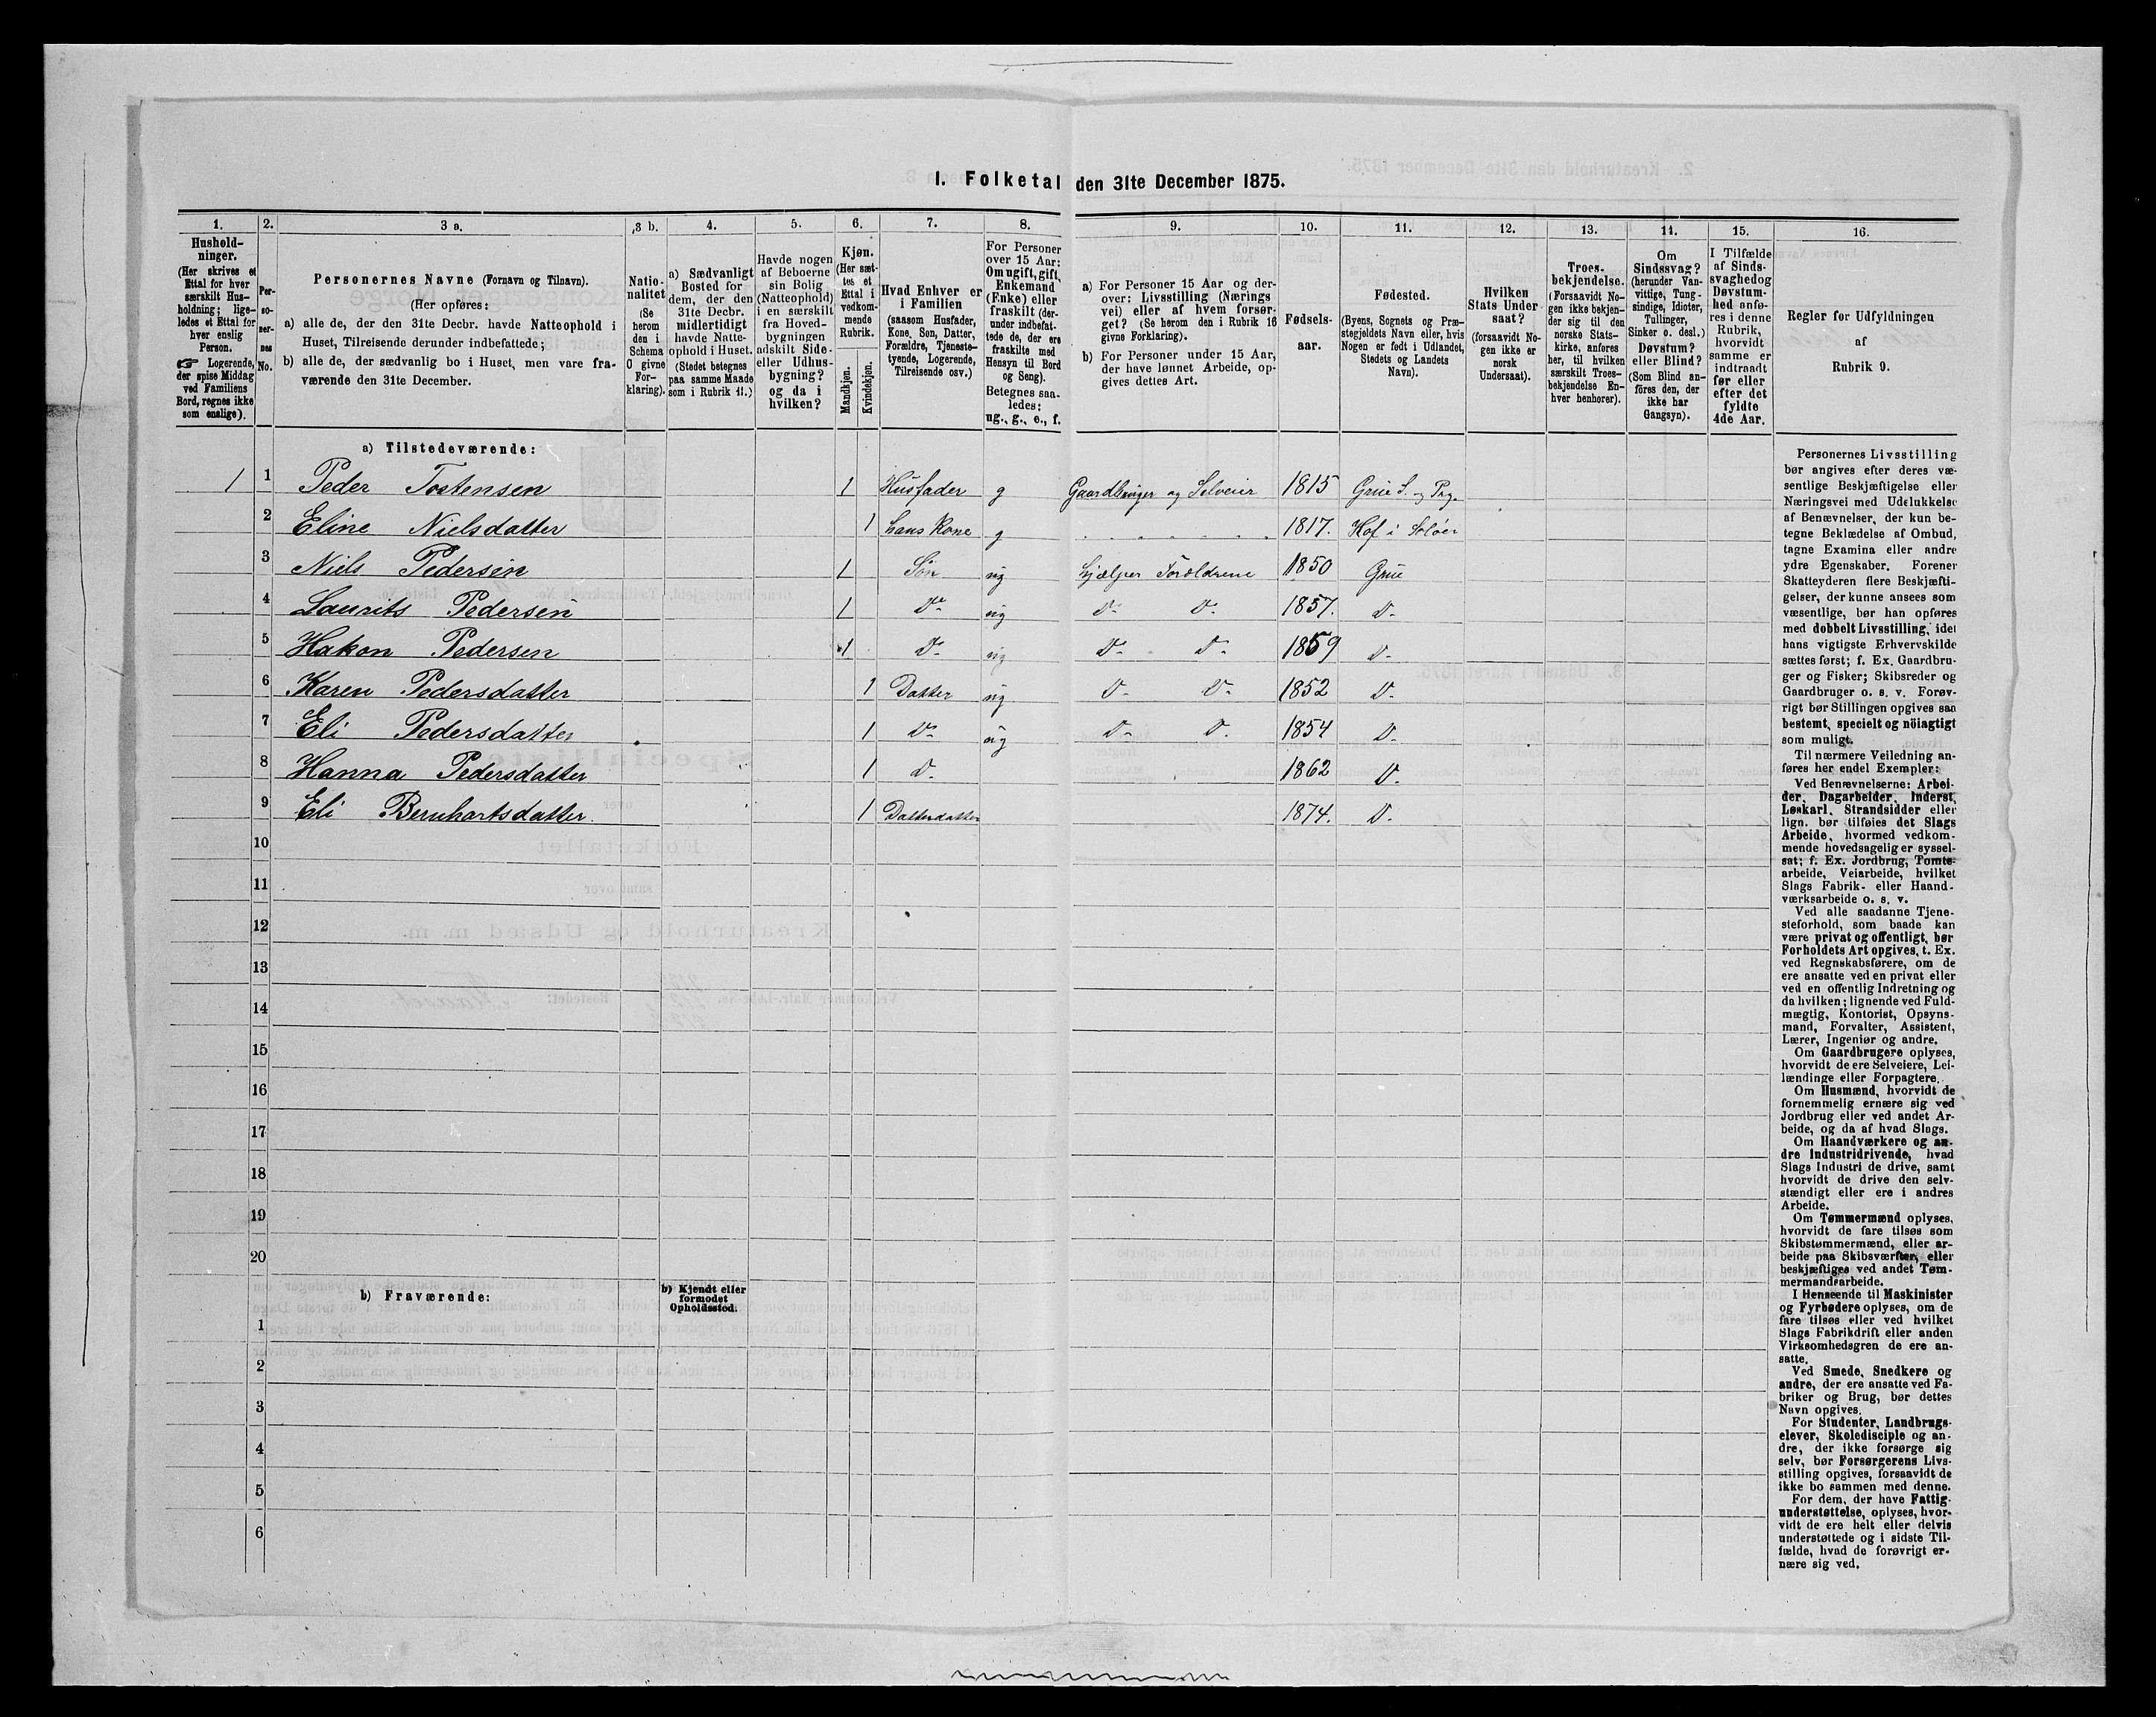 I. Folketal den 31te December 1875.
1. 2. 3 a. 3 b. 4. 5. 6. 7. 8. 9. 10. 11. 12. 13. 14. 15. 16.
Hushold-
ninger.
(Her skrives et
Ettal for hver
særskilt Hus-
holdning; lige-
ledes et Ettal for
hver enslig
Person.
☞ Logerende,
der spise Middag
ved Familiens
Bord, regnes ikke
som enslige).
Per-
so-
ner-
nes
No.
Personernes Navne (Fornavn og Tilnavn).
(Her opføres:
a) alle de, der den 31te Decbr. havde Natteophold i
Huset, Tilreisende derunder indbefattede;
b) alle de, der sædvanlig bo i Huset, men vare fra-
værende den 31te December.
Natio-
nalitet
(Se
herom
den i
Schema
O givne
For-
klaring).
a) Sædvanligt
Bosted for
dem, der den
31te Decbr.
midlertidigt
havde Natte-
ophold i Huset.
(Stedet betegnes
paa samme Maade
som i Rubrik 11.)
Havde nogen
af Beboerne
sin Bolig
(Natteophold)
i en særskilt
fra Hoved-
bygningen
adskilt Side-
eller Udhus-
bygning?
og da i
hvilken?
Kjøn.
(Her sæt-
tes et
Ettal i
vedkom-
mende
Rubrik.
Mandkjøn.
Kvindekjøn.
Hvad Enhver er
i Familien
(saasom Husfader,
Kone, Søn, Datter,
Forældre, Tjeneste-
tyende, Logerende,
Tilreisende osv.)
For Personer
over 15 Aar:
Om ugift, gift,
Enkemand
(Enke) eller
fraskilt (der-
under indbefat-
tede de, der ere
fraskilte med
Hensyn til Bord
og Seng).
Betegnes saa-
ledes:
ug., g., e., f.
a) For Personer 15 Aar og der-
over: Livsstilling (Nærings
vei) eller af hvem forsør-
get? (Se herom den i Rubrik 16
givne Forklaring).
b) For Personer under 15 Aar,
der have lønnet Arbeide, op-
gives dettes Art.
Fødsels-
aar.
Fødested.
(Byens, Sognets og Præ-
stegjeldets Navn eller, hvis
Nogen er født i Udlandet,
Stedets og Landets
Navn).
Hvilken
Stats Under-
saat?
(forsaavidt No-
gen ikke er
norsk
Undersaat).
Troes-
bekjendelse.
(Forsaavidt No-
gen ikke bekjen-
der sig til den
norske Stats-
kirke, anføres
her, til hvilken
særskilt Troes-
bekjendelse En-
hver henhører).
Om
Sindssvag?
(herunder Van-
vittige, Tung-
sindige, Idioter,
Tullinger,
Sinker o. desl.)
Døvstum?
eller Blind?
(Som Blind an-
føres den, der
ikke har
Gangsyn).
I Tilfælde
af Sinds-
svaghed og
Døvstum-
hed anfø-
res i denne
Rubrik,
hvorvidt
samme er
indtraadt
før eller
efter det
fyldte
4de Aar.
Regler for Udfyldningen
af
Rubrik 9.
a) Tilstedeværende:
1 1 Peder Tostensen 1 Husfader g Gaardbruger og Selveier 1815 Grue S. og Prg.
2 Eline Nielsdatter 1 hans Kone g 1817. Hof i Soløer
3 Niels Pedersen 1 Søn ug hjælper Forældrene 1850 Grue
4 Laurits Pedersen 1 Do ug Do Do 1857. Do
5 Hakon Pedersen 1 Do ug Do Do 1859 Do
6 Karen Pedersdatter 1 Datter ug Do Do 1852 Do
7 Eli Pedersdatter 1 Do ug Do Do 1854 Do
8 Hanna Pedersdatter 1 Do 1862 Do
9 Eli Bernhartsdatter. 1 Datterdatter 1874. Do
10
11
12
13
14
15
16
17
18
19
20
b) Fraværende:
b) Kjendt eller
formodet
Opholdssted.
1
2
3
4
5
6
Personernes Livsstilling
bør angives efter deres væ-
sentlige Beskjæftigelse eller
Næringsvei med Udelukkelse
af Benævnelser, der kun be-
tegne Beklædelse af Ombud,
tagne Examina eller andre
ydre Egenskaber. Forener
Skatteyderen flere Beskjæfti-
gelser, der kunne ansees som
væsentlige, bør han opføres
med dobbelt Livsstilling, idet
hans vigtigste Erhvervskilde
sættes først; f. Ex. Gaardbru-
ger og Fisker; Skibsreder og
Gaardbruger o. s. v. Forøv-
rigt bør Stillingen opgives saa
bestemt, specielt og nöiagtigt
som muligt.
Til nærmere Veiledning an-
føres her endel Exempler:
Ved Benævnelserne: Arbei-
der, Dagarbeider, Inderst,
Løskarl, Strandsidder eller
lign. bør tilføies det Slags
Arbeide, hvormed vedkom-
mende hovedsagelig er syssel-
sat; f. Ex. Jordbrug, Tomte-
arbeide, Veiarbeide, hvilket
Slags Fabrik- eller Haand-
værksarbeide o. s. v.
Ved alle saadanne Tjene-
steforhold, som baade kan
være privat og offentligt, bør
Forholdets Art opgives, t. Ex.
ved Regnskabsførere, om de
ere ansatte ved en privat eller
ved en offentlig Indretning og
da hvilken; lignende ved Fuld-
mægtig, Kontorist, Opsyns-
mand, Forvalter, Assistent,
Lærer, Ingeniør og andre.
Om Gaardbrugere oplyses,
hvorvidt de ere Selveiere, Lei-
lændinge eller Forpagtere.
Om Husmænd, hvorvidt de
fornemmelig ernære sig ved
Jordbrug eller ved andet Ar-
beide, og da af hvad Slags.
Om Haandværkere og an-
dre Industridrivende, hvad
Slags Industri de drive, samt
hvorvidt de drive den selv-
stændigt eller ere i andres
Arbeide.
Om Tømmermænd oplyses,
hvorvidt de fare tilsøs som
Skibstømmermænd, eller ar-
beide paa Skibsværfter, eller
beskjæftiges ved andet Tøm-
mermandsarbeide.
I Henseende til Maskinister
og Fyrbødere oplyses, om de
fare tilsøs eller ved hvilket
Slags Fabrikdrift eller anden
Virksomhedsgren de ere an-
satte.
Ved Smede, Snedkere og
andre, der ere ansatte ved Fa-
briker og Brug, bør dettes
Navn opgives.
For Studenter, Landbrugs-
elever, Skoledisciple og an-
dre, der ikke forsørge sig
selv, bør Forsørgerens Livs-
stilling opgives, forsaavidt de
ikke bo sammen med denne.
For dem, der have Fattig-
understøttelse, oplyses, hvor-
vidt de ere helt eller delvis
understøttede og i sidste Til-
fælde, hvad de forøvrigt er-
nære sig ved.